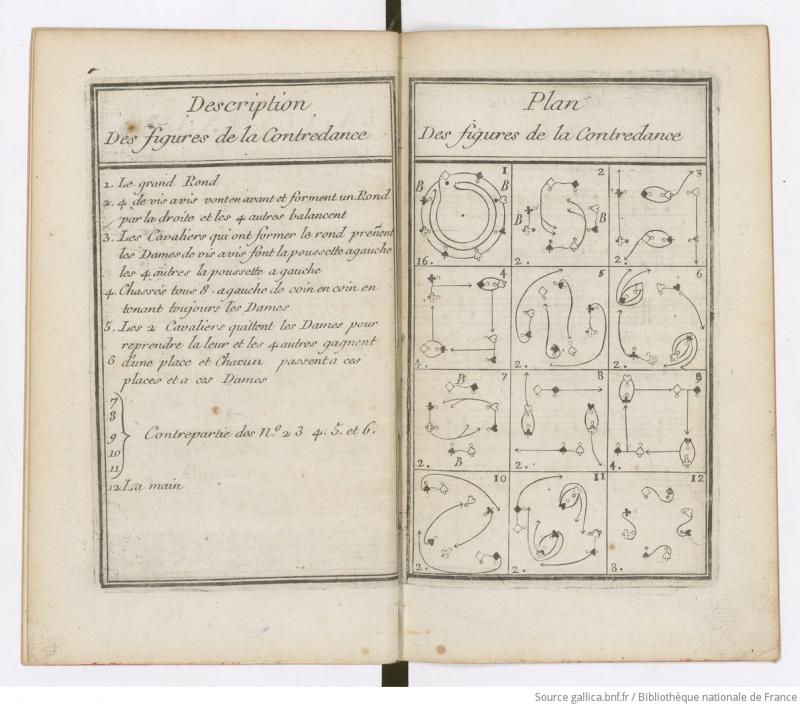 Description
Des figures de la Contredance
1. Le grand Rond
2. 4 de vis avis vont en avant et forment un Rond
par la droite et les 4 autres balancent
3. Les Cavaliers qui ont former le rond prenent
les Dames de vis avis font la poussette a gauche
les 4 autres la poussette a gauche
4. Chassés tous 8. a gauche de coin en coin en
tenant toujours les Dames
5. Les 2 Cavaliers quittent les Dames pour
reprendre la leur et les 4 autres gagnent
6 d'une place et Chacun passent a ces
places et a ces Dames
7
8
9 Contrepartie des N.º 2 3 4. 5. et 6.
10
11
12. La main
Plan
Des figures de la Contredance
1 B B 16.
2 B B 2.
3 2.
4 4.
5 2.
6 2.
7 B B 2.
8 2.
9 4.
10 2.
11 2.
12 8.
Source gallica.bnf.fr / Bibliothèque nationale de France